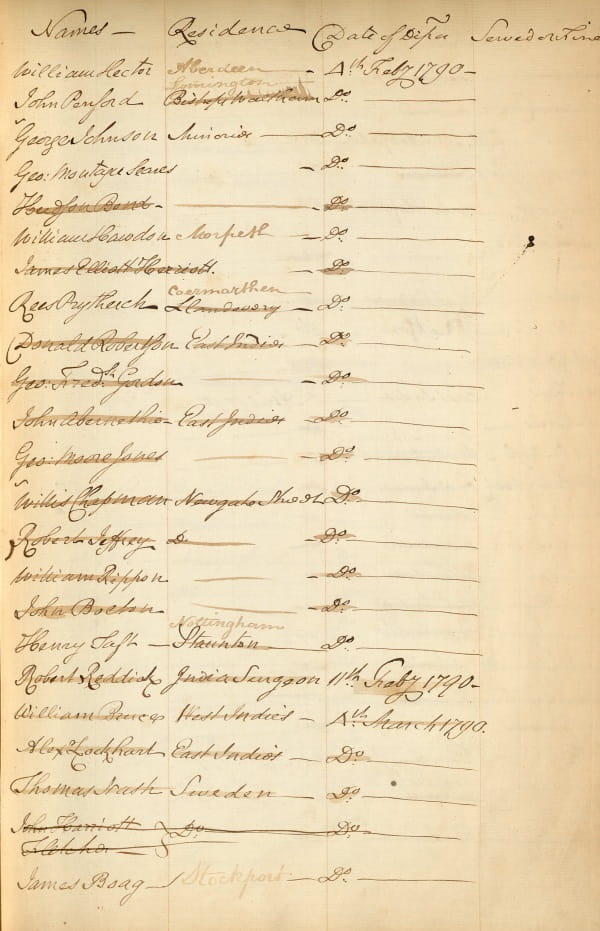 Names — Residence Date of Dip:a Served or Fine
William Hector Aberdeen — 4th Feby 1790 —
Lymington
John Penford Bishops Waltham Do
George Johnson Minories — Do
Geo: Montague Do
Hudson Bond — — Do
William Hawdon Morpeth — Do
James Elliott Herriott. — Do
Caermarthen
Rees Prytherch Llandovery — Do
Donald Robertson East Indies — Do
Geo: Fredk Gordon — Do
John Abernethie — East Indies — Do
Geo: Moore Jones — Do
Willis Chapman Newgate Street Do
Robert Jeffrey Do — Do
William Rippon — Do
John Bolton — Do
Nottingham
Henry Taft — Staunton — Do
Robert Reddick India Surgeon 11th Feby 1790 —
William Bruce West Indies — 4th March 1790.
Alexr Lockhart East Indies — Do
Thomas Nash Sweden — Do
John Harriott } Do — Do
Fletcher —
James Boag — Stockport — Do